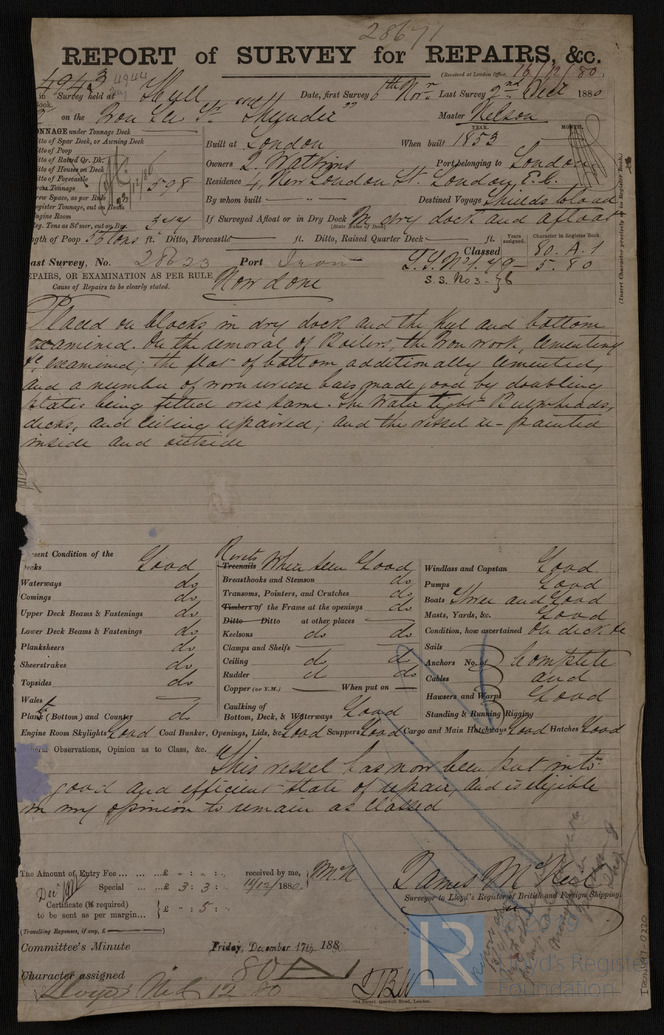 28671
REPORT of SURVEY for REPAIRS, &c.
(Received at London Office, 16/12/80)
4943 4944
Survey held at Hull Date, first Survey 6th Novr Last Survey 2nd Decr 1880
on the Iron Sc Str Master Nelson
TONNAGE under Tonnage Deck
Ditto of Spar Deck, or Awning Deck
Ditto of Poop
Ditto of Raised Qr. Dk.
Ditto of Houses on Deck
Ditto of Forecastle
Gross Tonnage 598
Crew Space, as per Rule
Register Tonnage, out on Beam
Engine Room
Reg. Tons as St'mer, cut on Beam
Built at London When built 1853
YEAR. MONTH.
Owners Watkins Port belonging to London
Residence 4, New London St. London, E.C.
By whom built Destined Voyage Shields to load
If Surveyed Afloat or in Dry Dock In dry dock and afloat
(State Name of Dock)
Length of Poop ft. Ditto, Forecastle ft. Ditto, Raised Quarter Deck ft.
Years assigned. Character in Register Book.
Classed 80. A. 1
Last Survey, No. 28623 Port Iron
5. 80
S.S. No 3 - 76
REPAIRS, OR EXAMINATION AS PER RULE Now done
Cause of Repairs to be clearly stated.
(Insert Character precisely as in Register Book)
Placed on blocks in dry dock and the keel and bottom
examined. On the removal of Boilers, the iron work, cementing
&c, examined; the flat of bottom additionally cemented,
and a number of worn made good by doubling
plates being fitted over same. The water tight Bulkheads,
decks, and ceiling repaired; and the vessel re-painted
inside and outside
Present Condition of the
Decks Good
Waterways do
Comings do
Upper Deck Beams & Fastenings do
Lower Deck Beams & Fastenings do
Planksheers do
Sheerstrakes do
Topsides do
Wales
Plank (Bottom) and Counter do
Rivets Treenails When seen Good
Breasthooks and Stemson do
Transoms, Pointers, and Crutches do
Timbers of the Frame at the openings do
Ditto Ditto at other places
Keelsons do do
Clamps and Shelfs
Ceiling do do
Rudder do do
Copper (or Y.M.) When put on
Caulking of
Bottom, Deck, & Waterways Good
Windlass and Capstan Good
Pumps Good
Boats Three and Good
Masts, Yards, &c. Good
Condition, how ascertained On deck &c
Sails
Anchors No. of Complete
Cables and
Hawsers and Warps Good
Standing & Running Rigging
Engine Room Skylights Good Coal Bunker, Openings, Lids, &c. Good Scuppers Good Cargo and Main Hatchways Good Hatches Good
General Observations, Opinion as to Class, &c.
This vessel has now been put into
good and efficient state of repair, and is eligible
in my opinion to remain as classed
The Amount of Entry Fee ... ... £ - : - : - received by me,
Special ... £ 3 : 3 : 14/12/1880
Certificate (if required)
to be sent as per margin... £ - : 5 :
(Travelling Expenses, if any, £ )
James McNeil
Surveyor to Lloyd's Register of British and Foreign Shipping.
Committee's Minute Friday, December 17th 188
Character assigned 80 A 1
Lloyds 12 80
LR
Lloyd's Register
Foundation